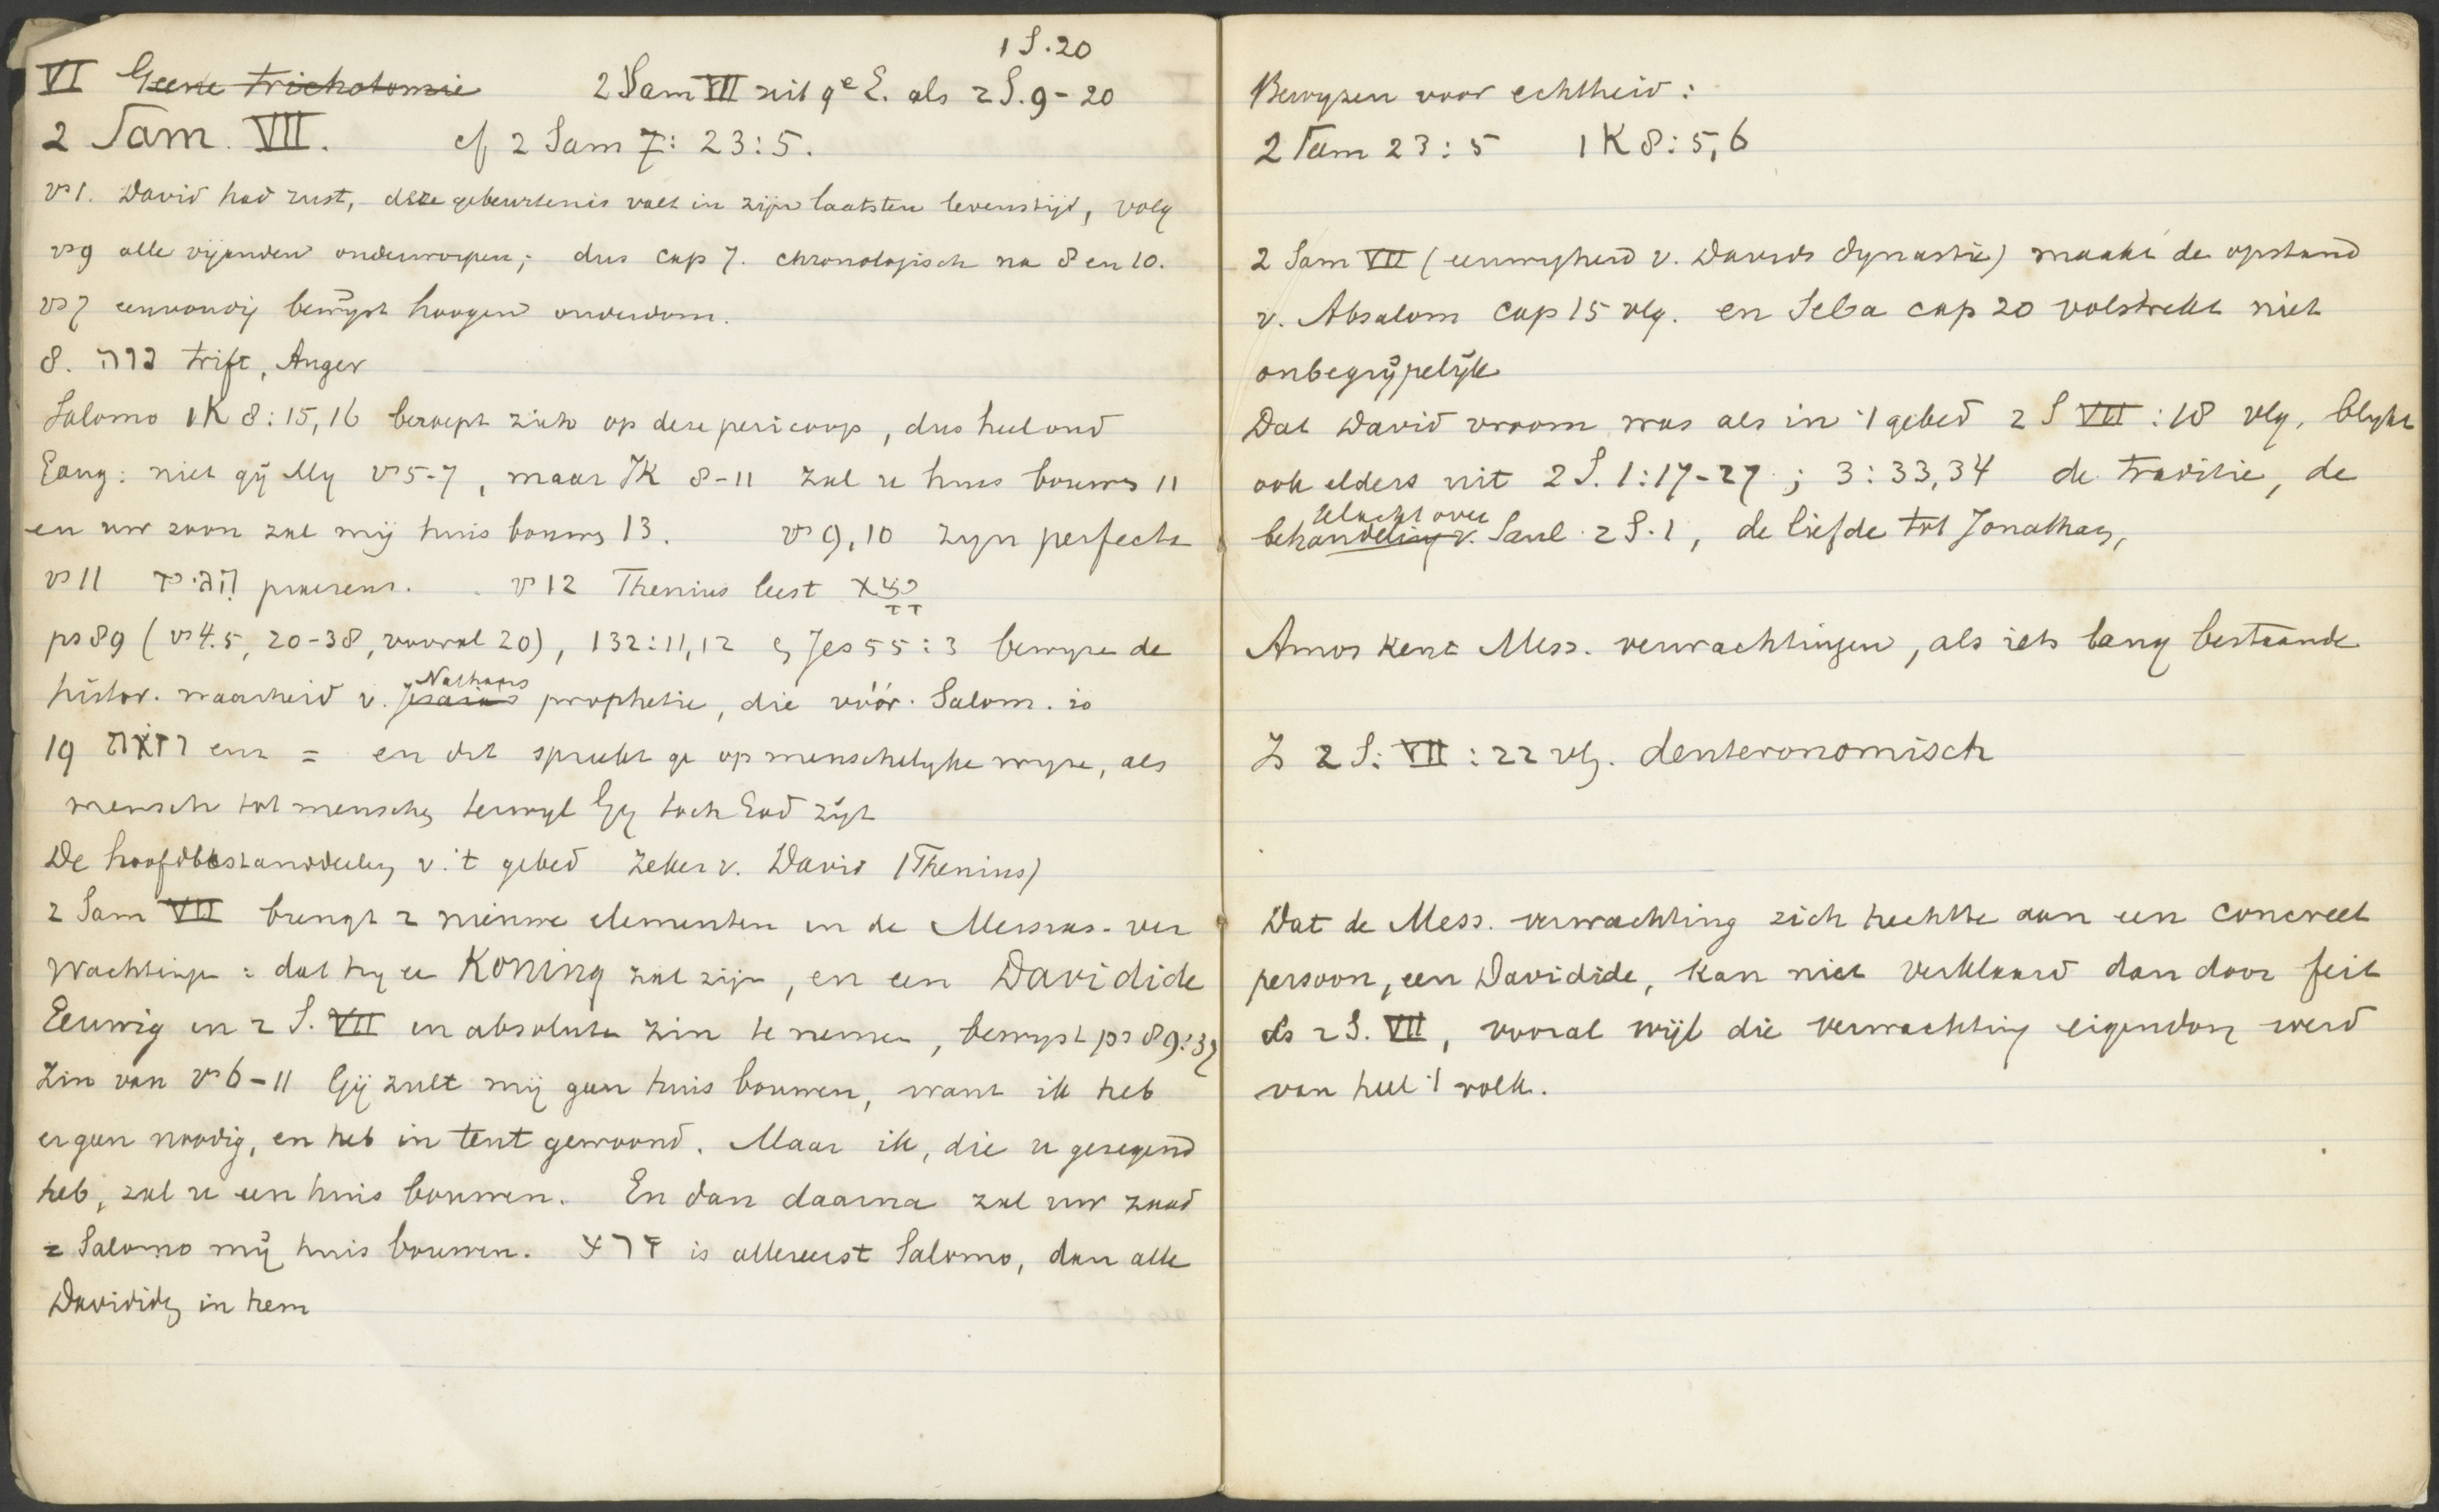 1 S. 20
VI Geene trichotomie 2 Sam VII uit 9e E. als 2 S. 9-20
2 Sam. VII. cf 2 Sam 7: 23:5.
vs 1. David had rust, deze gebeurtenis valt in zijn laatsten levenstijd, volg
vs 9 alle vijanden onderworpen; dus cap 7. chronologisch na 8 en 10.
vs 7 eenvoudig bewijst hoogen ouderdom.
8. נוה Trift, Anger
Salomo 1K 8:15,16 beroept zich op deze pericoop, dus heel oud
niet gij Mij vs 5-7, maar IK 8-11 zal u huis bouwen 11
en uw zoon zal mij huis bouwen 13. vs 9,10 zyn perfecta
vs 11 praesens. vs 12 Thenius leest יצא
ps 89 (vs 4.5, 20-38, vooral 20), 132:11,12 en Jes 55:3 bewyzen de
Nathans
histor. waarheid v. Jesaias prophetie, die vóór Salom. is
19 וזאת enz = en dit spreekt ge op menschelyke wyze, als
mensch tot menschen terwyl Gy toch God zijt
De hoofdbestanddeelen v. 't gebed zeker v. David (Thenius)
2 Sam VII brengt 2 nieuwe elementen in de Messias-ver
wachtingen: dat hy een KONING zal zijn, en een Davidide
Eeuwig in 2 S. VII in absoluten zin te nemen, bewyst ps 89:37
Zin van vs 6-11 Gij zult mij geen huis bouwen, want ik heb
er geen noodig, en heb in tent gewoond. Maar ik, die u gezegend
heb, zal u een huis bouwen. En dan daarna zal uw zaad
= Salomo mij huis bouwen. זרע is allereerst Salomo, dan alle
Davididen in hem
Bewyzen voor echtheid:
2 Sam 23:5 1K 8:5,6
2 Sam VII (eeuwigheid v. Davids dynastie) maakt de opstand
v. Absalom cap 15 vlg. en Seba cap 20 volstrekt niet
onbegrijpelijk
Dat David vroom was als in 't gebed 2 S VII:18 vlg, blykt
ook elders uit 2 S. 1:17-27; 3:33,34 de traditie, de
klacht over
behandeling v. Saul 2 S. 1, de liefde tot Jonathan,
Amos kent Mess. verwachtingen, als iets lang bestaande
Is 2 S. VII:22 vlg. deuteronomisch
Dat de Mess. verwachting zich hechtte aan een concreet
persoon, een Davidide, kan niet verklaard dan door feit
als 2 S. VII, vooral wijl die verwachting eigendom werd
van heel 't volk.